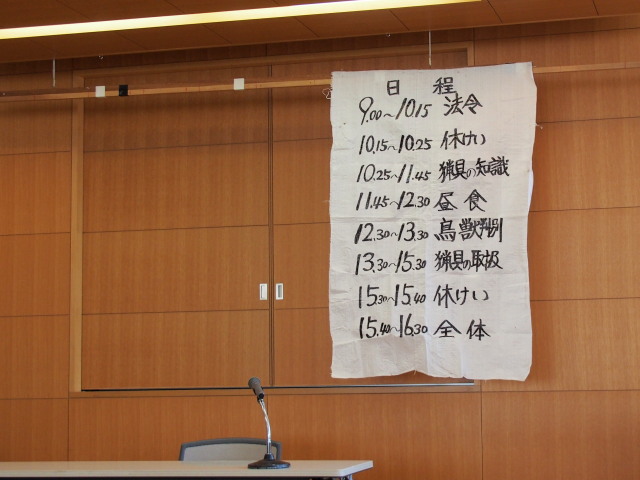 日程
9.00～10.15 法令
10.15～10.25 休けい
10.25～11.45 猟具の知識
11.45～12.30 昼食
12.30～13.30 鳥獣判別
13.30～15.30 猟具の取扱
15.30～15.40 休けい
15.40～16.30 全体